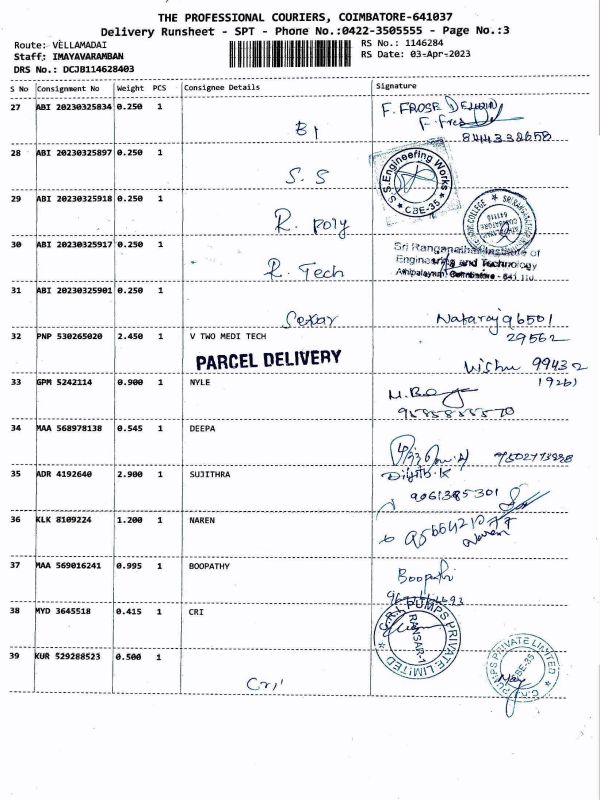 THE PROFESSIONAL COURIERS, COIMBATORE-641037
Delivery Runsheet - SPT - Phone No.:0422-3505555 - Page No.:3
Route: VELLAMADAI
RS No.: 1146284
Staff: IMAYAVARAMBAN
RS Date: 03-Apr-2023
DRS No.: DCJB114628403
S No Consignment No Weight PCS Consignee Details Signature
27 ABI 20230325834 0.250 1 B1 F. FROSE
844338658
28 ABI 20230325897 0.250 1 S. S
S.S.Engineering Works
CBE-35
29 ABI 20230325918 0.250 1 R. poly
30 ABI 20230325917 0.250 1 R. Tech
Sri Ranganathar Institute of
Engineering and Technology
Athipalayam, Coimbatore - 641 110.
31 ABI 20230325901 0.250 1 Sekar Nataraj 96501
29562
32 PNP 530265020 2.450 1 V TWO MEDI TECH
PARCEL DELIVERY
Vishnu 99432
19261
33 GPM 5242114 0.900 1 NYLE
34 MAA 568978138 0.545 1 DEEPA
35 ADR 4192640 2.900 1 SUJITHRA
9061385301
36 KLK 8109224 1.200 1 NAREN
Naren
37 MAA 569016241 0.995 1 BOOPATHY Boopathi
38 MYD 3645518 0.415 1 CRI
C.R.I. PUMPS PRIVATE LIMITED
39 KUR 529288523 0.500 1 Cri
C.R.I. PUMPS PRIVATE LIMITED
CBE-35